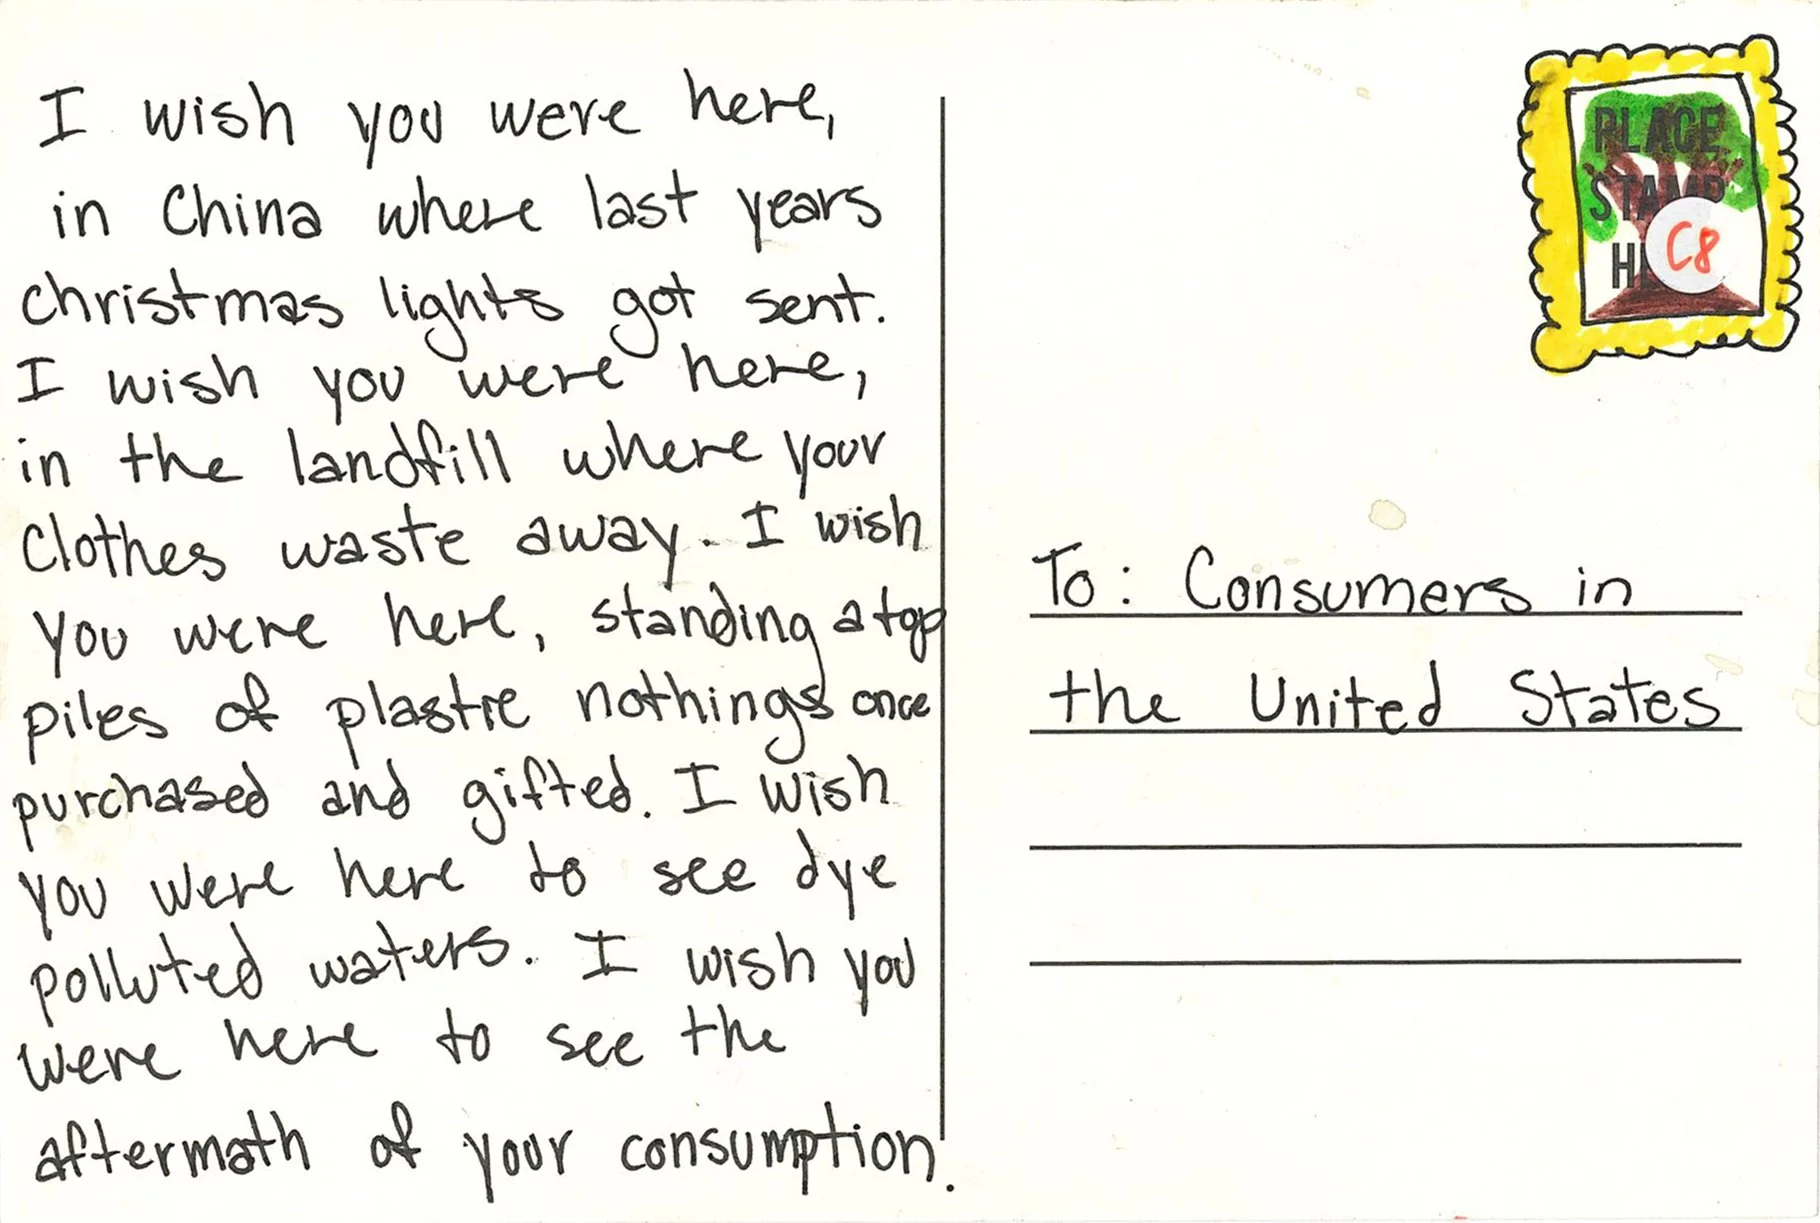 I wish you were here,
in China where last years
christmas lights got sent.
I wish you were here,
in the landfill where your
clothes waste away. I wish
you were here, standing atop
piles of plastic nothings once
purchased and gifted. I wish
you were here to see dye
polluted waters. I wish you
were here to see the
aftermath of your consumption.
PLACE
STAMP
HE
C8
To: Consumers in
the United States